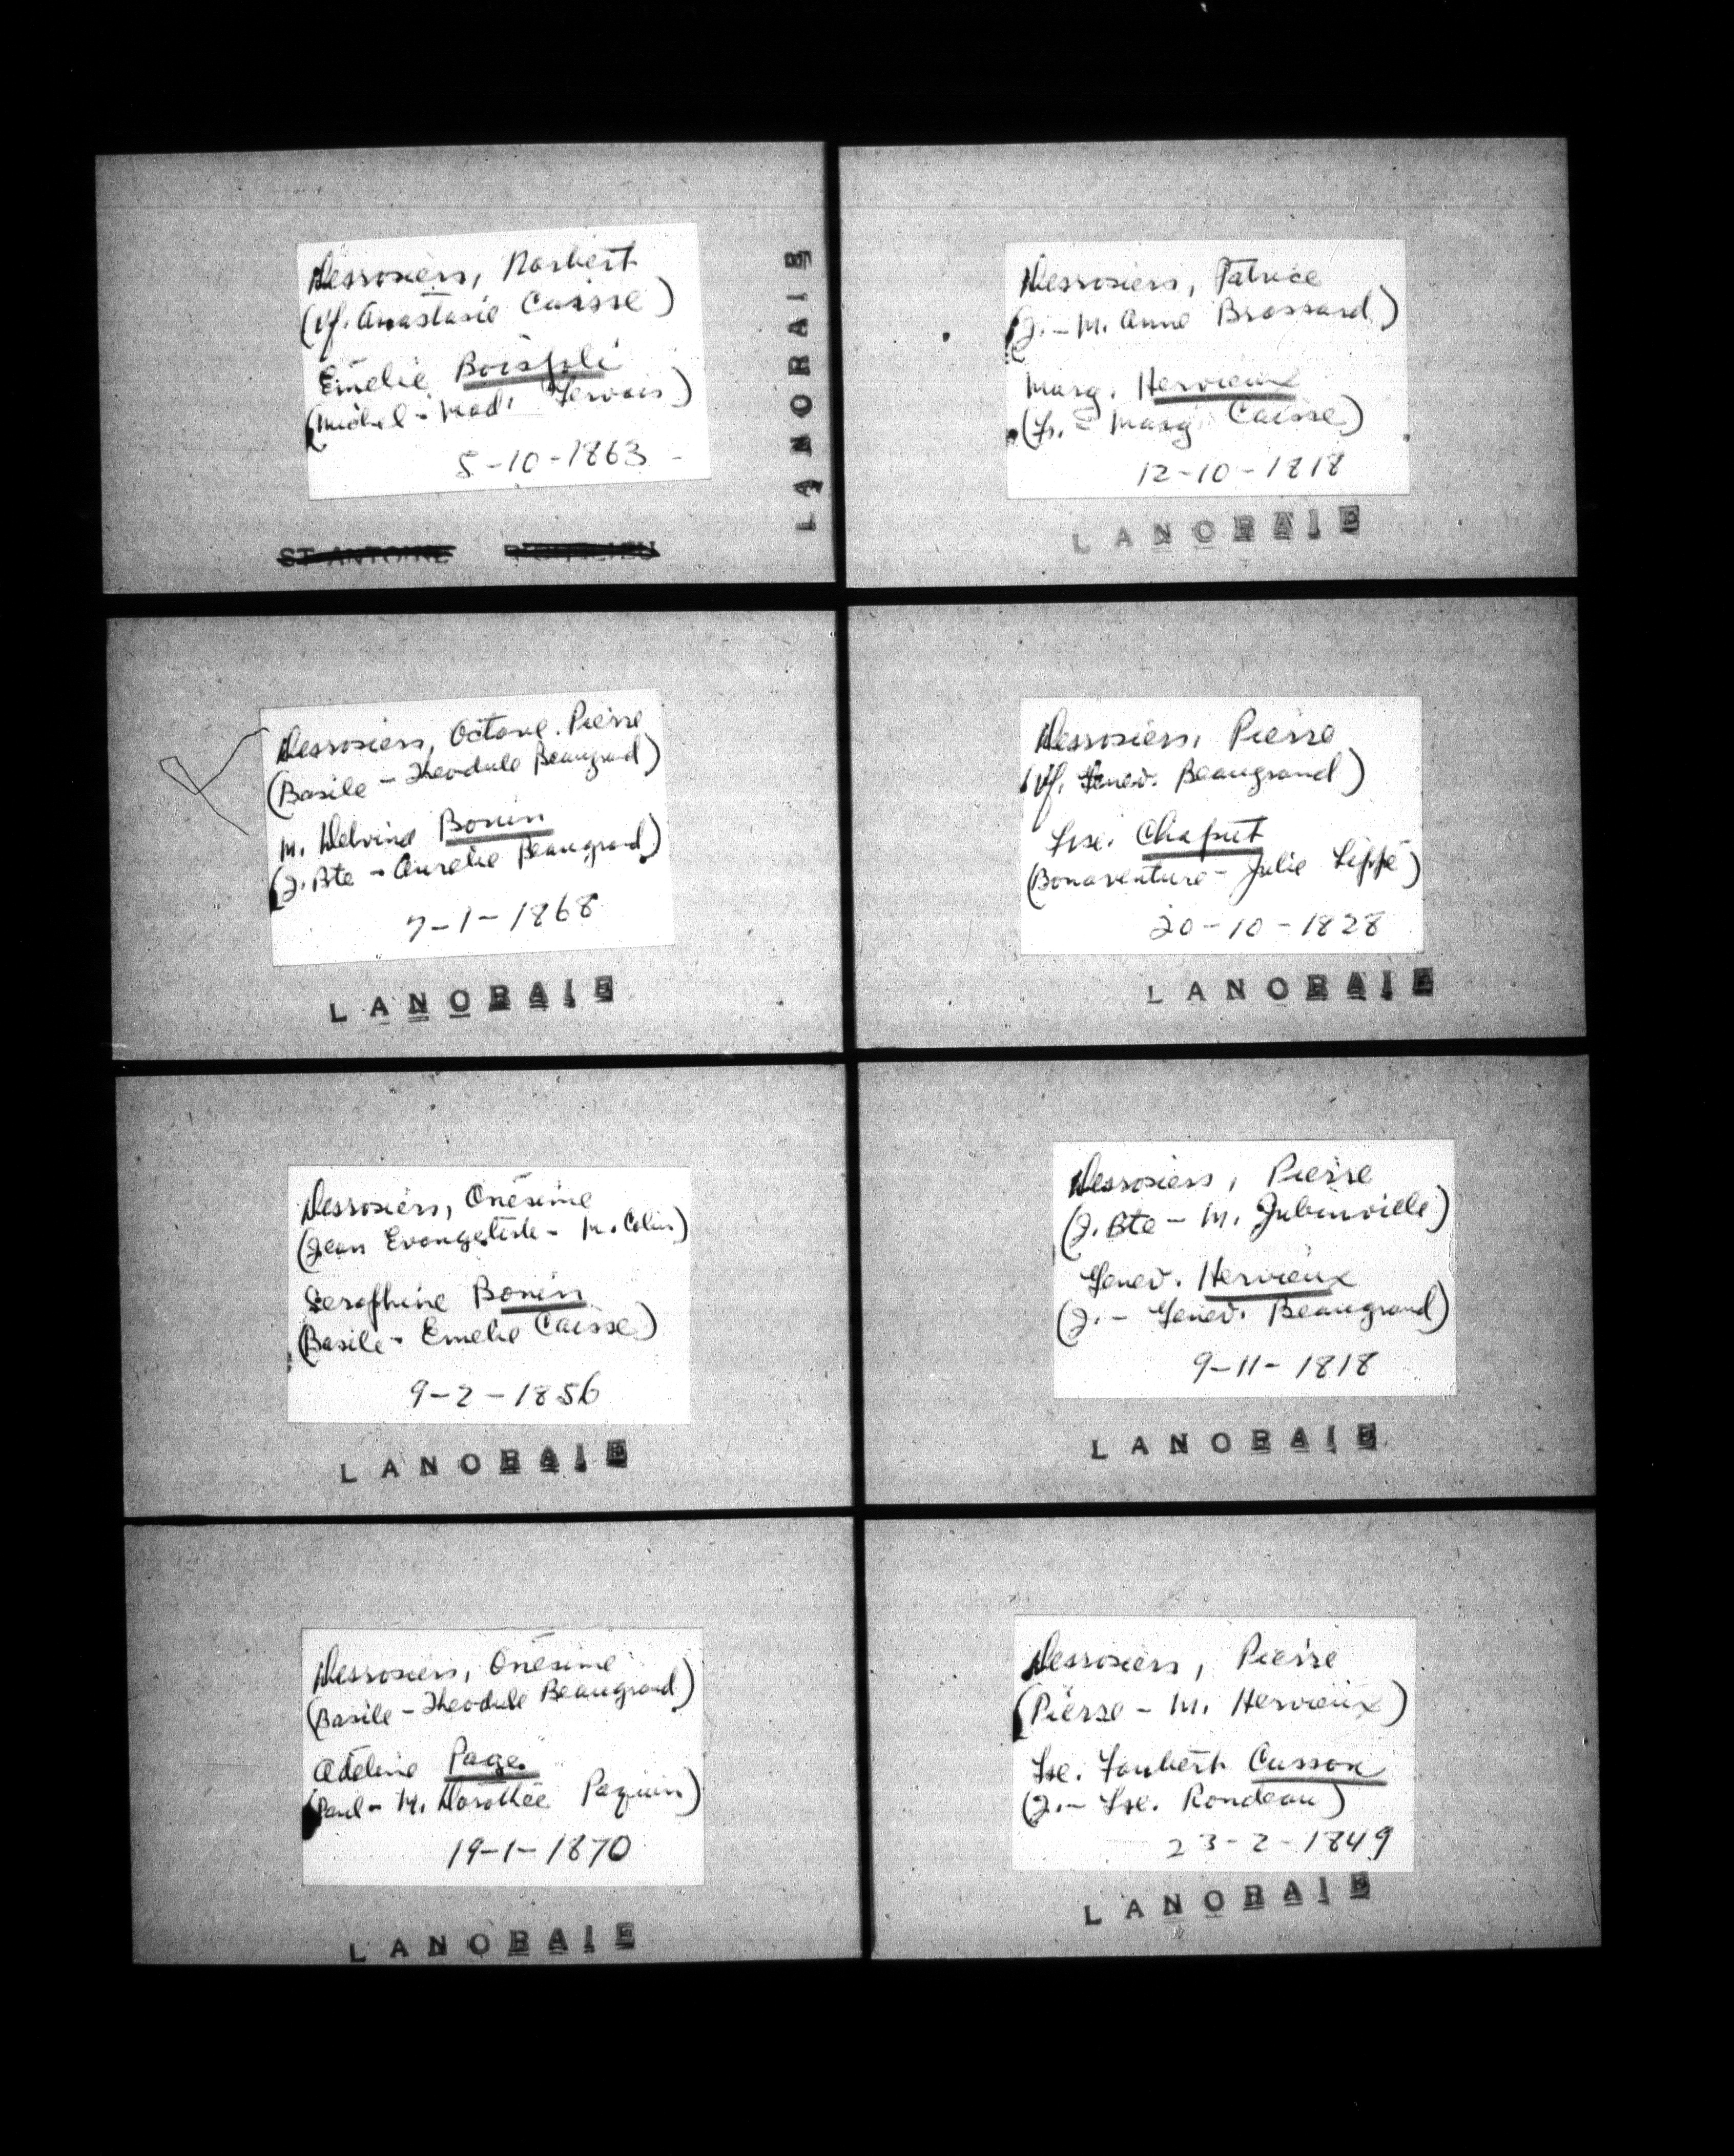 Desrosiers, Norbert
(Vf. Anastasie Caisse)
Emelie Boisjoli
(Michel - Mad. Gervais)
5-10-1863 -
LANORAIE
ST-ANTOINE
Desrosiers, Patrice
(J. - M. Anne Brossard)
Marg. Hervieux
(Fr. - Marg. Caisse)
12-10-1818
LANORAIE
Desrosiers, Octave. Pierre
(Basile - Theodule Beaugrand)
M. Delvina Bonin
(J. Bte - Aurelie Beaugrand)
7-1-1868
LANORAIE
Desrosiers, Pierre
(Vf. Genev. Beaugrand)
Lse. Chaput
(Bonaventure - Julie Lippé)
20-10-1828
LANORAIE
Desrosiers, Onésime
(Jean Evangeliste - M. Colin)
Seraphine Bonin
(Basile - Emelie Caisse)
9-2-1856
LANORAIE
Desrosiers, Pierre
(J. Bte - M. Jubinville)
Genev. Hervieux
(J. - Genev. Beaugrand)
9-11-1818
LANORAIE
Desrosiers, Onésime
(Basile - Theodule Beaugrand)
Adeline Page
(Paul - M. Dorothée Paquin)
19-1-1870
LANORAIE
Desrosiers, Pierre
(Pierre - M. Hervieux)
Lse. Joubert Cusson
(J. - Lse. Rondeau)
23-2-1849
LANORAIE